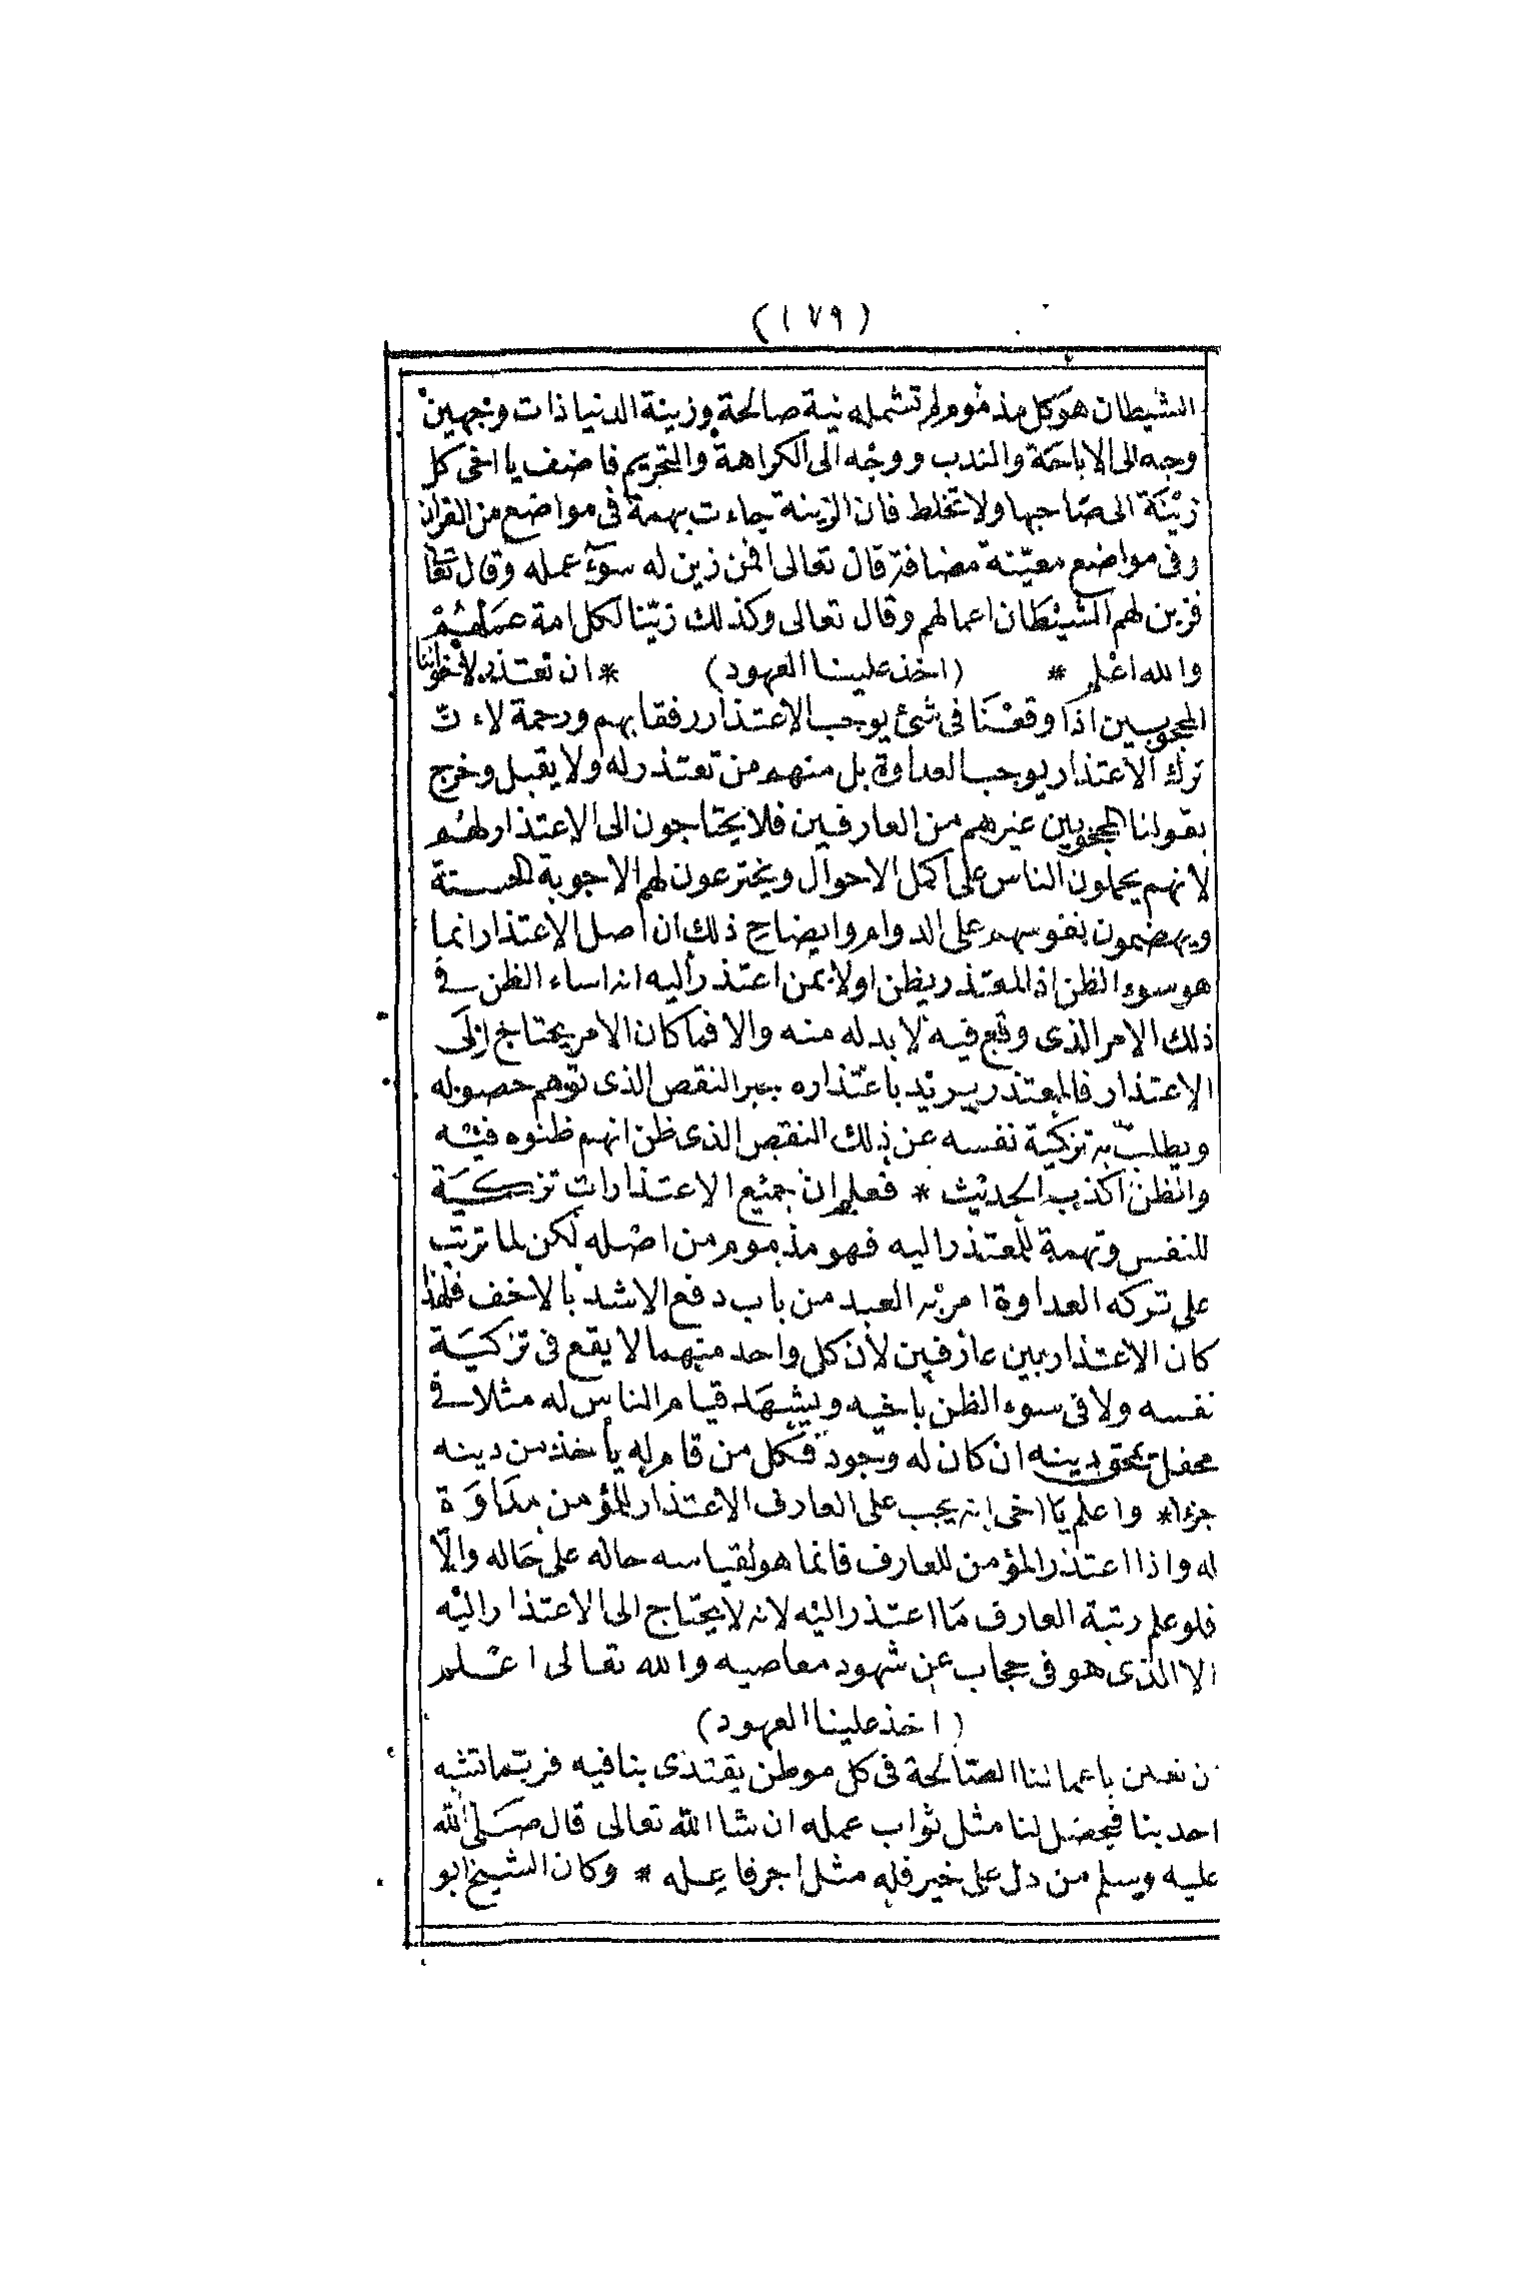 (١٧٩)
الشيطان هو كل مذموم لم تشمله نية صالحة وزينة الدنيا ذات وجهين
وجه الى الاباحة والندب ووجه الى الكراهة والتحريم فاضف يا اخى كل
زينة الى صاحبها ولا تخلط فان الزينة جاءت بهمة فى مواضع من القران
وفى مواضع معينة مضافة قال تعالى افمن زين له سوء عمله وقال تعا
فزين لهم الشيطان اعمالهم وقال تعالى وكذلك زينا لكل امة عملهم
والله اعلم * (اخذ علينا العهود) * ان نعتذر لاخواننا
المحجوبين اذا وقعنا فى شئ يوجب الاعتذار رفقا بهم ورحمة لان
ترك الاعتذار يوجب العداوة بل منهم من تعتذر له ولا يقبل وخرج
بقولنا المحجوبين غيرهم من العارفين فلا يحتاجون الى الاعتذار لهم
لانهم يحملون الناس على اكمل الاحوال ويخترعون لهم الاجوبة الحسنة
ويهضمون نفوسهم على الدوام وايضاح ذلك ان اصل الاعتذار انما
هو سوء الظن اذ المعتذر يظن اولا بمن اعتذر اليه انه اساء الظن فى
ذلك الامر الذى وقع فيه لا بد له منه والا فما كان الامر يحتاج الى
الاعتذار فالمعتذر يريد باعتذاره جبر النقص الذى توهم حصوله
ويطلب به تزكية نفسه عن ذلك النقص الذى ظن انهم ظنوه فيه
والظن اكذب الحديث * فعلم ان جميع الاعتذارات تزكية
للنفس وتهمة للمعتذر اليه فهو مذموم من اصله لكن لما ترتب
على تركه العداوة امر به العبد من باب دفع الاشد بالاخف فلهذا
كان الاعتذار بين عارفين لان كل واحد منهما لا يقع فى تزكية
نفسه ولا فى سوء الظن باخيه ويشهد قيام الناس له مثلا فى
محفل محق دينه ان كان له وجود فكل من قام له يأخذ من دينه
جزءا * واعلم يا اخى انه يجب على العارف الاعتذار للمؤمن مداوة
له واذا اعتذر المؤمن للعارف فانما هو لقياسه حاله على حاله والا
فلو علم رتبة العارف ما اعتذر اليه لانه لا يحتاج الى الاعتذار اليه
الا الذى هو فى حجاب عن شهود معاصيه والله تعالى اعلم
(اخذ علينا العهود)
ن نعلن باعمالنا الصالحة فى كل موطن يقتدى بنا فيه فربما تنبه
احد بنا فيحصل لنا مثل ثواب عمله ان شا الله تعالى قال صلى الله
عليه وسلم من دل على خير فله مثل اجر فاعله * وكان الشيخ ابو